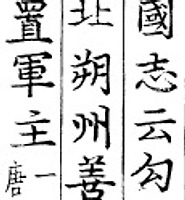 國志云勾
北朔州善
置軍主
一
唐